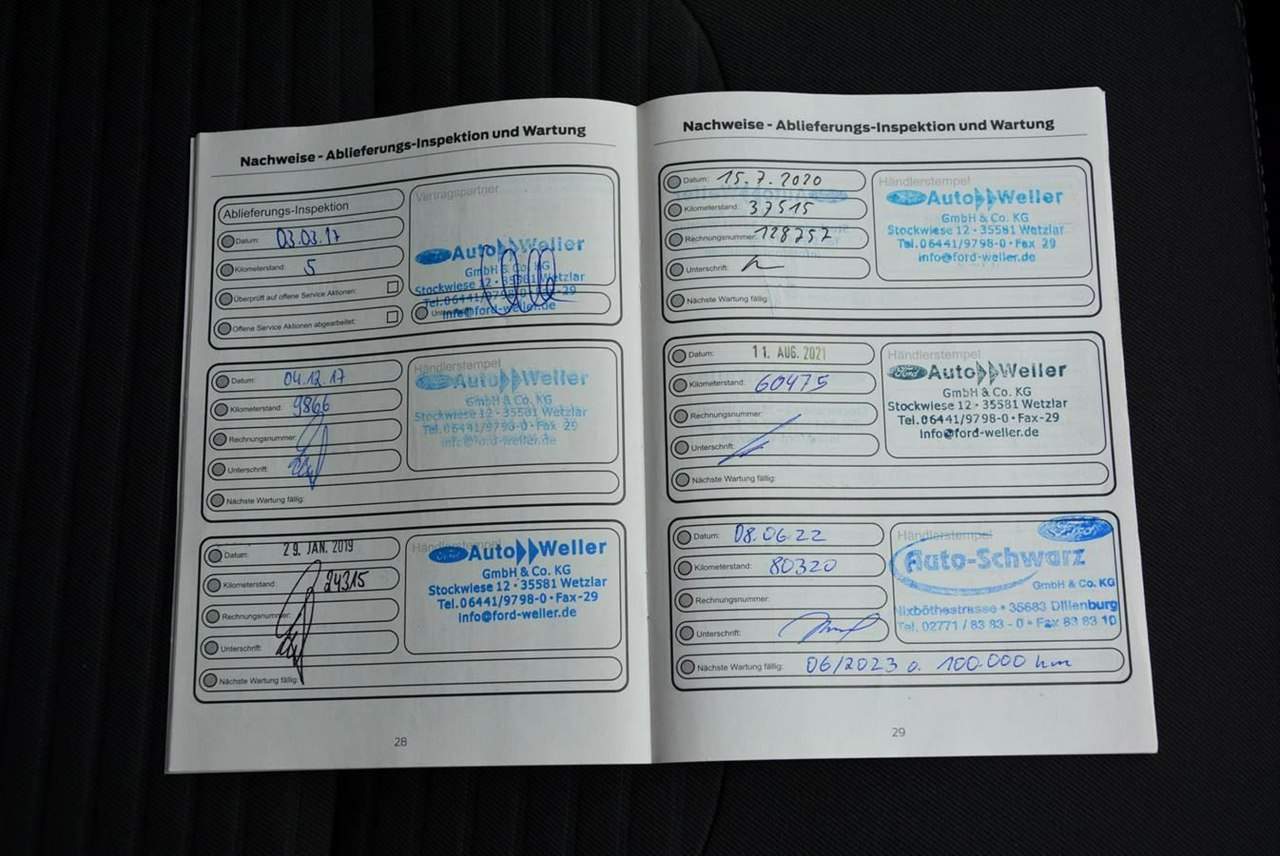 Nachweise - Ablieferungs-Inspektion und Wartung
Ablieferungs-Inspektion
Datum: 03.03.17
Kilometerstand: 5
Überprüft auf offene Service Aktionen:
Offene Service Aktionen abgearbeitet:
Vertragspartner
Ford Auto Weller
GmbH & Co. KG
Stockwiese 12 · 35581 Wetzlar
Tel. 06441/9798-0 · Fax -29
info@ford-weller.de
Datum: 04.12.17
Kilometerstand: 9866
Rechnungsnummer:
Unterschrift:
Nächste Wartung fällig:
Händlerstempel
Ford Auto Weller
GmbH & Co. KG
Stockwiese 12 - 35581 Wetzlar
Tel. 06441/9798-0 · Fax 29
info@ford-weller.de
Datum: 29. JAN. 2019
Kilometerstand: 24315
Rechnungsnummer:
Unterschrift:
Nächste Wartung fällig:
Händlerstempel
Ford Auto Weller
GmbH & Co. KG
Stockwiese 12 · 35581 Wetzlar
Tel. 06441/9798-0 · Fax-29
info@ford-weller.de
28
Nachweise - Ablieferungs-Inspektion und Wartung
Datum: 15.7.2020
Kilometerstand: 37515
Rechnungsnummer: 128757
Unterschrift:
Nächste Wartung fällig:
Händlerstempel
Ford Auto Weller
GmbH & Co. KG
Stockwiese 12 - 35581 Wetzlar
Tel. 06441/9798-0 · Fax 29
info@ford-weller.de
Datum: 11. AUG. 2021
Kilometerstand: 60475
Rechnungsnummer:
Unterschrift:
Nächste Wartung fällig:
Händlerstempel
Ford Auto Weller
GmbH & Co. KG
Stockwiese 12 - 35581 Wetzlar
Tel. 06441/9798-0 · Fax-29
info@ford-weller.de
Datum: 08.06.22
Kilometerstand: 80320
Rechnungsnummer:
Unterschrift:
Nächste Wartung fällig: 06/2023 o. 100.000 km
Händlerstempel
Ford
Auto-Schwarz
GmbH & Co. KG
Nixböthestrasse · 35683 Dillenburg
Tel. 02771 / 83 83 - 0 · Fax 83 83 10
29